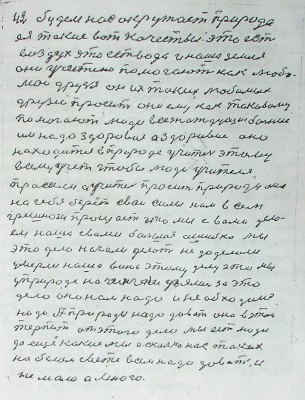 42 будем нас окружает природа
ея такие вот качества это есть
воздух это есть вода и наша земля
они помогают как
мой друг он их таких любимых
друзей просит они ему как таковому
помогают люде всенаждающи больше
им надо здоровия а здоровие оно
находится в природе учител этому
всему учит чтобы люде учителя
просили а учител просит природу она
на себя берёт свои силы нам всем
грешной прощает что мы с вами
ем наша с вами большая ошибка мы
это дело начали делат не доделали
умерли наша вина этому делу это мы
у природе на за это
дело оно нам надо и необходимо
надо А природы надо доват она в этом
терпит от этого дела мы ест люди
до ещё какие мы осколко нас таких
на белом свете всем надо доват и
не мало а много.